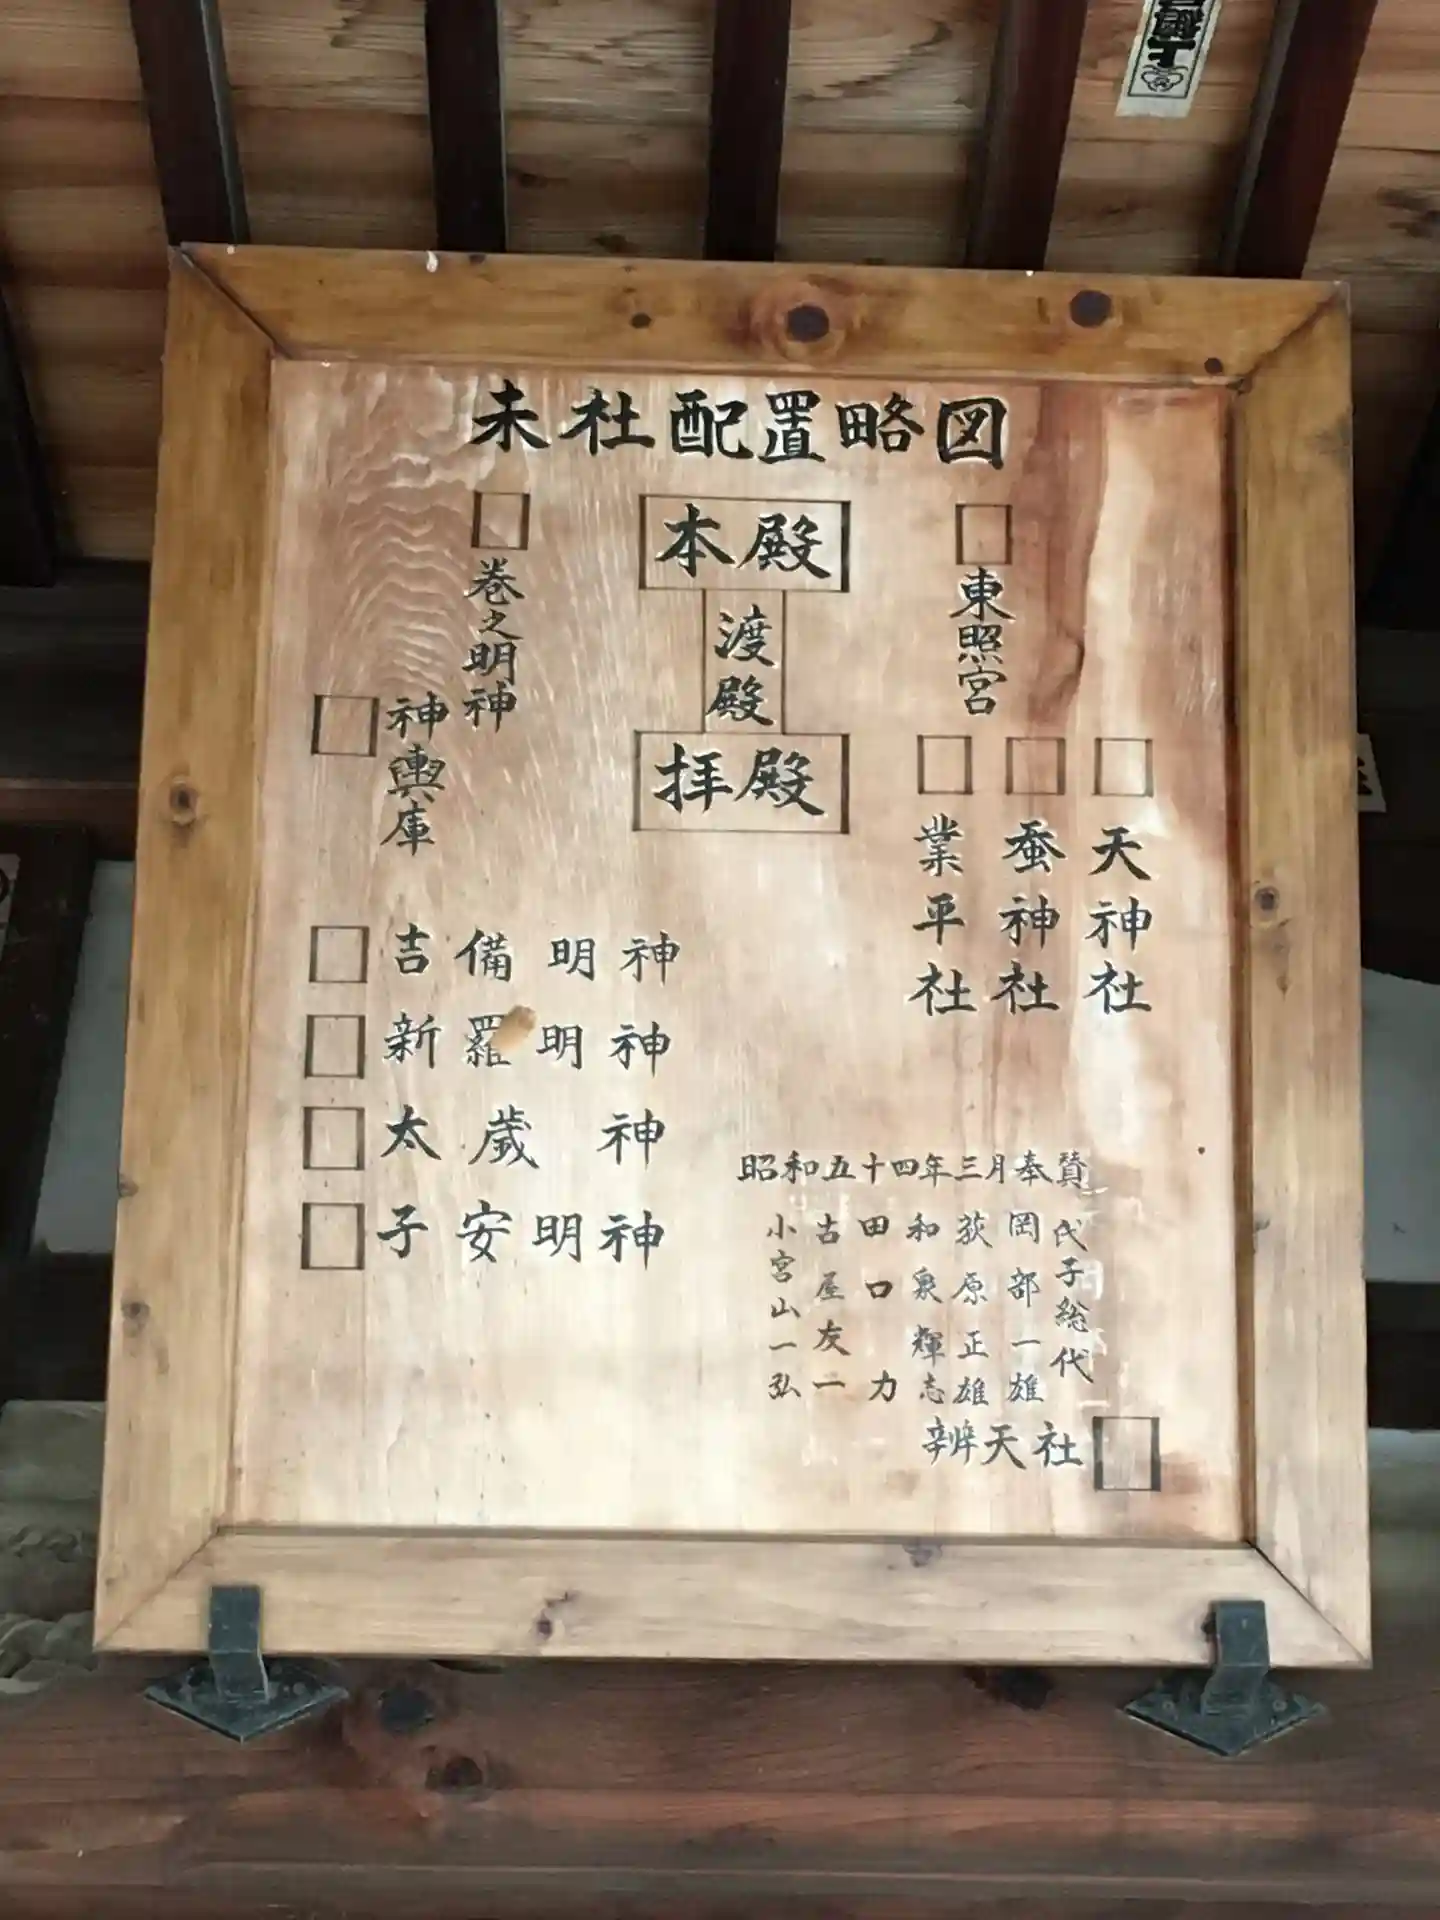 末社配置略図
本殿
渡殿
拝殿
東照宮
巻之明神
神輿庫
天神社
蚕神社
業平社
吉備明神
新羅明神
太歳神
子安明神
昭和五十四年三月奉賛
氏子総代
岡部一雄
荻原正雄
和泉輝志
田口力
古屋友一
小宮山一弘
辨天社